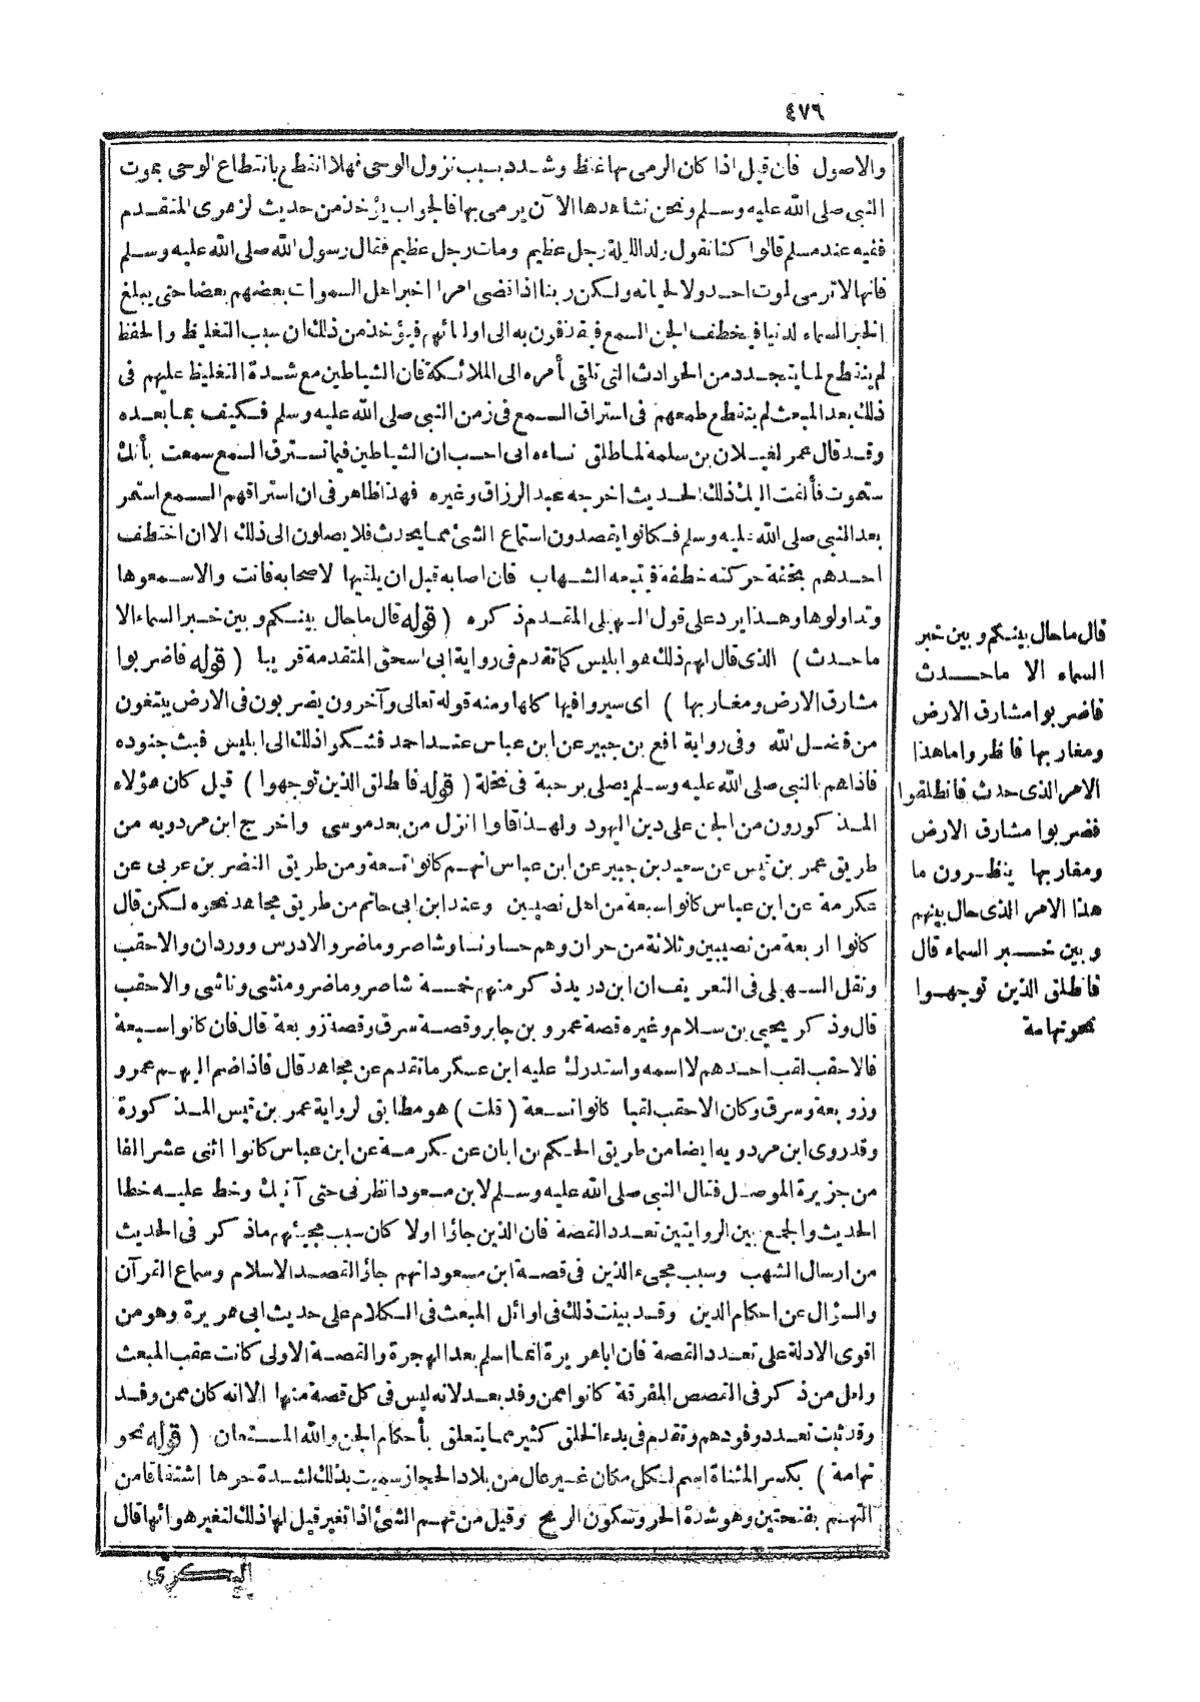 ٤٧٦
والاصول فان قيل اذا كان الرمى بها غلظ وشدد بسبب نزول الوحى فهلا انقطع بانقطاع الوحى بموت
النبى صلى الله عليه وسلم ونحن نشاهدها الآن يرمى بها فالجواب يؤخذ من حديث الزهرى المتقدم
ففيه عند مسلم قالوا كنا نقول ولد الليلة رجل عظيم ومات رجل عظيم فقال رسول الله صلى الله عليه وسلم
فانها لا ترمى لموت احد ولا لحياته ولكن ربنا اذا قضى امرا اخبر اهل السموات بعضهم بعضا حتى يبلغ
الخبر السماء الدنيا فيخطف الجن السمع فيقذفون به الى اوليائهم فيؤخذ من ذلك ان سبب التغليظ والحفظ
لم ينقطع لما يتجدد من الحوادث التى تلقى بأمره الى الملائكة فان الشياطين مع شدة التغليظ عليهم فى
ذلك بعد المبعث لم ينقطع طمعهم فى استراق السمع فى زمن النبى صلى الله عليه وسلم فكيف بما بعده
وقد قال عمر لغيلان بن سلمة لما طلق نساءه انى احسب ان الشياطين فيما تسترق السمع سمعت بأنك
ستموت فألقت اليك ذلك الحديث اخرجه عبد الرزاق وغيره فهذا ظاهر فى ان استراقهم السمع استمر
بعد النبى صلى الله عليه وسلم فكانوا يقصدون استماع الشئ مما يحدث فلا يصلون الى ذلك الا ان اختطف
احدهم بخفة حركته خطفة فيتبعه الشهاب فان اصابه قبل ان يلقيها لاصحابه فاتت والا سمعوها
وتداولوها وهذا يرد على قول السهيلى المقدم ذكره (قوله قال ما حال بينكم وبين خبر السماء الا
ما حدث) الذى قال لهم ذلك هو ابليس كما تقدم فى رواية ابى اسحق المتقدمة قريبا (قوله فاضربوا
مشارق الارض ومغاربها) اى سيروا فيها كلها ومنه قوله تعالى وآخرون يضربون فى الارض يبتغون
من فضل الله وفى رواية نافع بن جبير عن ابن عباس عند احمد فشكوا ذلك الى ابليس فبث جنوده
فاذاهم بالنبى صلى الله عليه وسلم يصلى برحبة فى نخلة (قوله فانطلق الذين توجهوا) قيل كان هؤلاء
المذكورون من الجن على دين اليهود ولهذا قالوا انزل من بعد موسى واخرج ابن مردويه من
طريق عمر بن قيس عن سعيد بن جبير عن ابن عباس انهم كانوا تسعة ومن طريق النضر بن عربى عن
عكرمة عن ابن عباس كانوا سبعة من اهل نصيبين وعند ابن ابى حاتم من طريق مجاهد نحوه لكن قال
كانوا اربعة من نصيبين وثلاثة من حران وهم حسا ونسا وشاصر وماضر والادرس ووردان والاحقب
ونقل السهيلى فى التعريف ان ابن دريد ذكر منهم خمسة شاصر وماضر ومنشى وناشى والاحقب
قال وذكر يحيى بن سلام وغيره قصة عمرو بن جابر وقصة سرق وقصة زوبعة قال فان كانوا سبعة
فالاحقب لقب احدهم لا اسمه واستدرك عليه ابن عسكر ما تقدم عن مجاهد قال فاذا ضم اليهم عمرو
وزوبعة وسرق وكان الاحقب لقبا كانوا تسعة (قلت) هو مطابق لرواية عمر بن قيس المذكورة
وقد روى ابن مردويه ايضا من طريق الحكم بن ابان عن عكرمة عن ابن عباس كانوا اثنى عشر الفا
من جزيرة الموصل فقال النبى صلى الله عليه وسلم لابن مسعود انظرنى حتى آتيك وخط عليه خطا
الحديث والجمع بين الروايتين تعدد القصة فان الذين جاؤا اولا كان سبب مجيئهم ما ذكر فى الحديث
من ارسال الشهب وسبب مجىء الذين فى قصة ابن مسعود انهم جاؤا لقصد الاسلام وسماع القرآن
والسؤال عن احكام الدين وقد بينت ذلك فى اوائل المبعث فى الكلام على حديث ابى هريرة وهو من
اقوى الادلة على تعدد القصة فان ابا هريرة انما اسلم بعد الهجرة والقصة الاولى كانت عقب المبعث
ولعل من ذكر فى القصص المفرقة كانوا ممن وفد بعد لانه ليس فى كل قصة منها الا انه كان ممن وفد
وقد ثبت تعدد وفودهم وتقدم فى بدء الخلق كثير مما يتعلق بأحكام الجن والله المستعان (قوله نحو
تهامة) بكسر المثناة اسم لكل مكان غير عال من بلاد الحجاز سميت بذلك لشدة حرها اشتقاقا من
التهم بفتحتين وهو شدة الحر وسكون الريح وقيل من تهم الشئ اذا تغير قيل لها ذلك لتغير هوائها قال
البكرى
قال ما حال بينكم وبين خبر
السماء الا ما حدث
فاضربوا مشارق الارض
ومغاربها فانظروا ما هذا
الامر الذى حدث فانطلقوا
فضربوا مشارق الارض
ومغاربها ينظرون ما
هذا الامر الذى حال بينهم
وبين خبر السماء قال
فانطلق الذين توجهوا
نحو تهامة